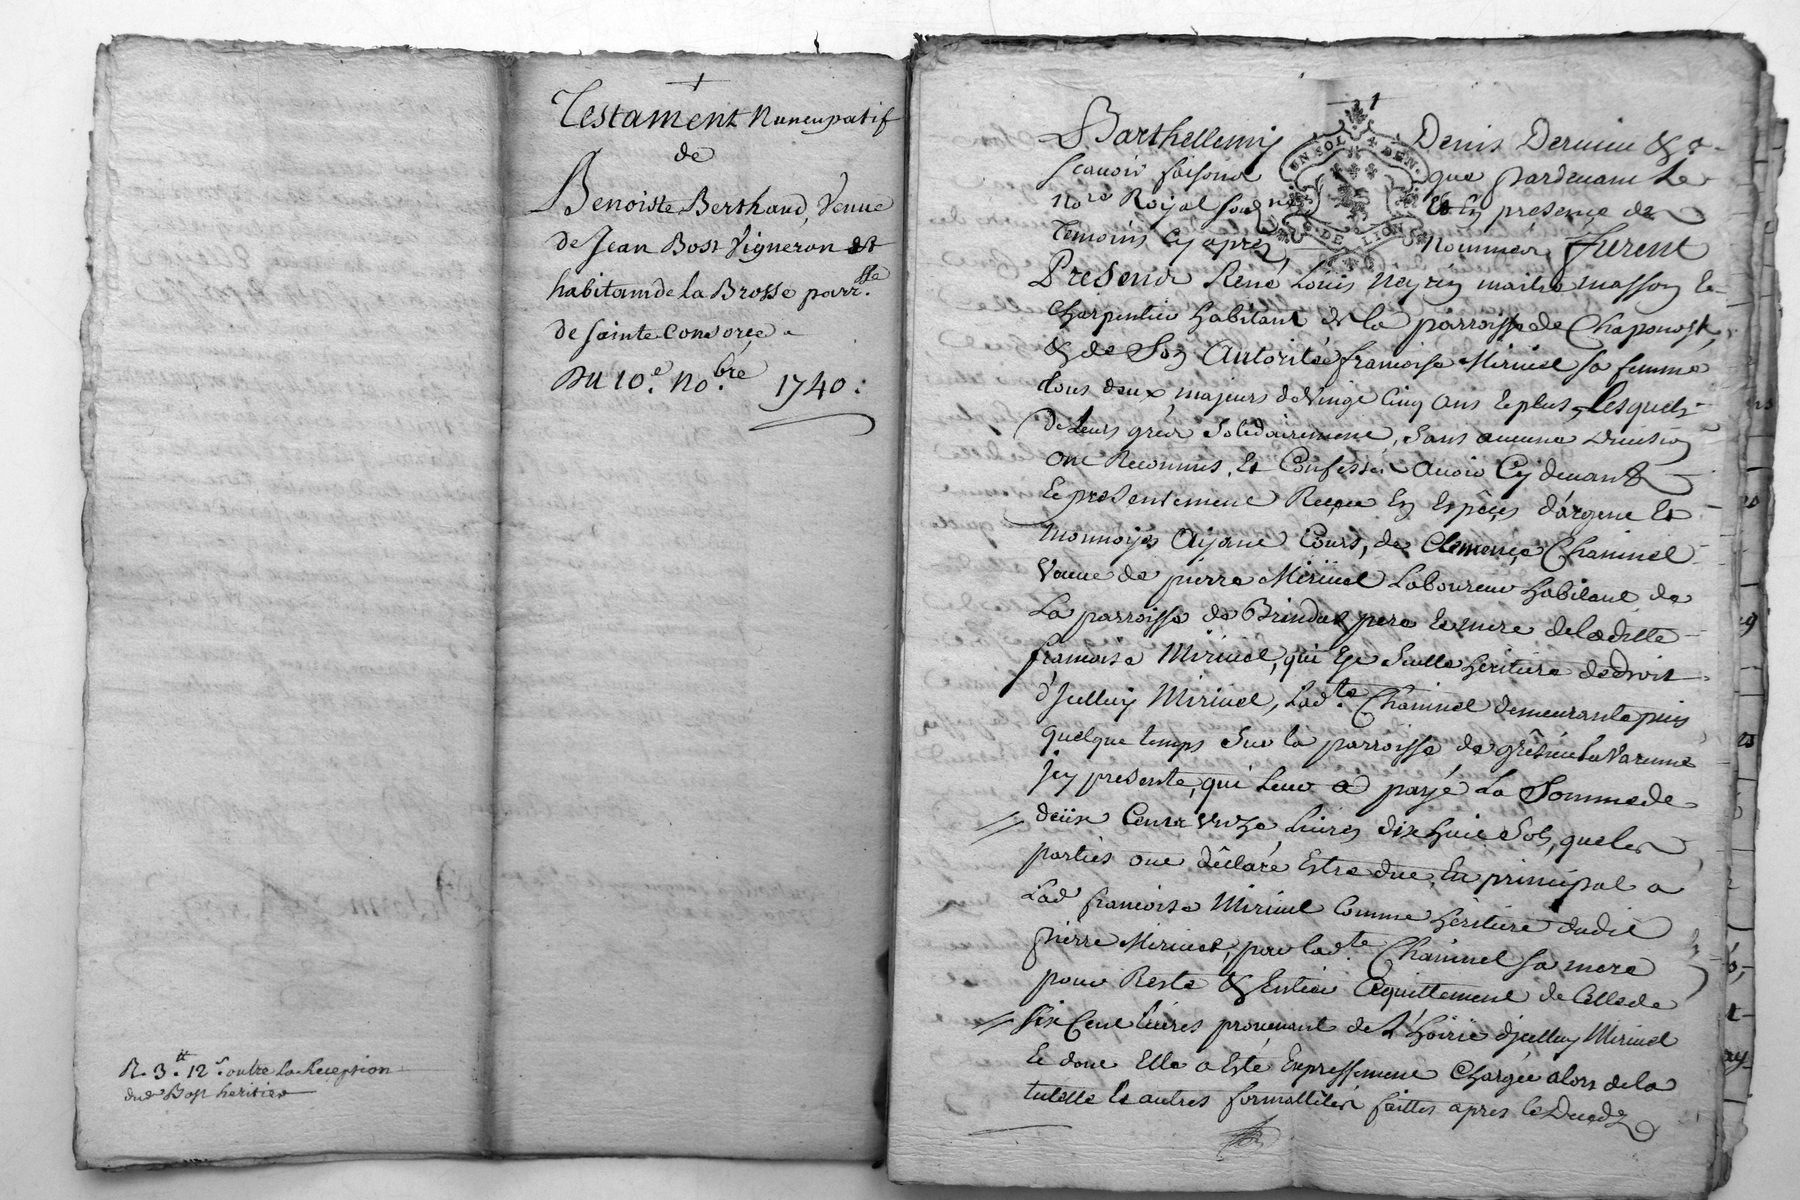 Testament Nuncupatif
de
Benoiste Berthaud, Veuue
de Jean Bost Vigneron et
habitant de la Brosse parr.sse
de sainte Consorce
Du 10.e No.bre 1740.
R. 3.tt 12.s outre la Reception
dud Bost heritier
Barthellemy Denis Deruieu &.a
scauoir faisons que pardeuant Le
no.re Royal sous.né Et En présence des
Temoins Cy après Nommés Furent
Presens René Louis Neyrin maitre masson Et
Charpentier habitant de la parroisse de Chaponost,
& de Son Autorité françoise Miriuel sa femme
tous deux majeurs de Vingt Cinq ans Et plus, Lesquels
de Leurs grés Solidairement, Sans aucune Diuision
ont Reconnus Et Confessés auoir Cy deuant &
Et presentement Reçue En Espêces d'argent Et
monnoyes Ayant Cours, de Clemence Chaninel
Veuue de pierre Miriuel Laboureur habitant de
La parroisse de Brindas pere Et mere de la ditte
françoise Miriuel, qui Est Seulle héritiere de droit
d'Jullien Miriuel, Lad.te Chaninel demeurante puis
quelque temps Sur la parroisse de grêsieu La Varenne
jcy presente, qui Leur a payé La Somme de
deüx Cents Unze Liures dix huit Sols, que les
parties ont déclaré Estre due En principal a
Lad françoise Miriuel Comme héritiere dudit
pierre Miriuel, par lad.te Chaninel sa mere
pour Reste & Entier Acquittement de Celle de
Six Cent Liures prouenant de L'hoirie d'Jullien Miriuel
Et dont Elle a Esté Expressement Chargée alors de la
tutelle Et autres formallités faittes apres le Decedz
UN SOL 4 DEN.
G. DE LION